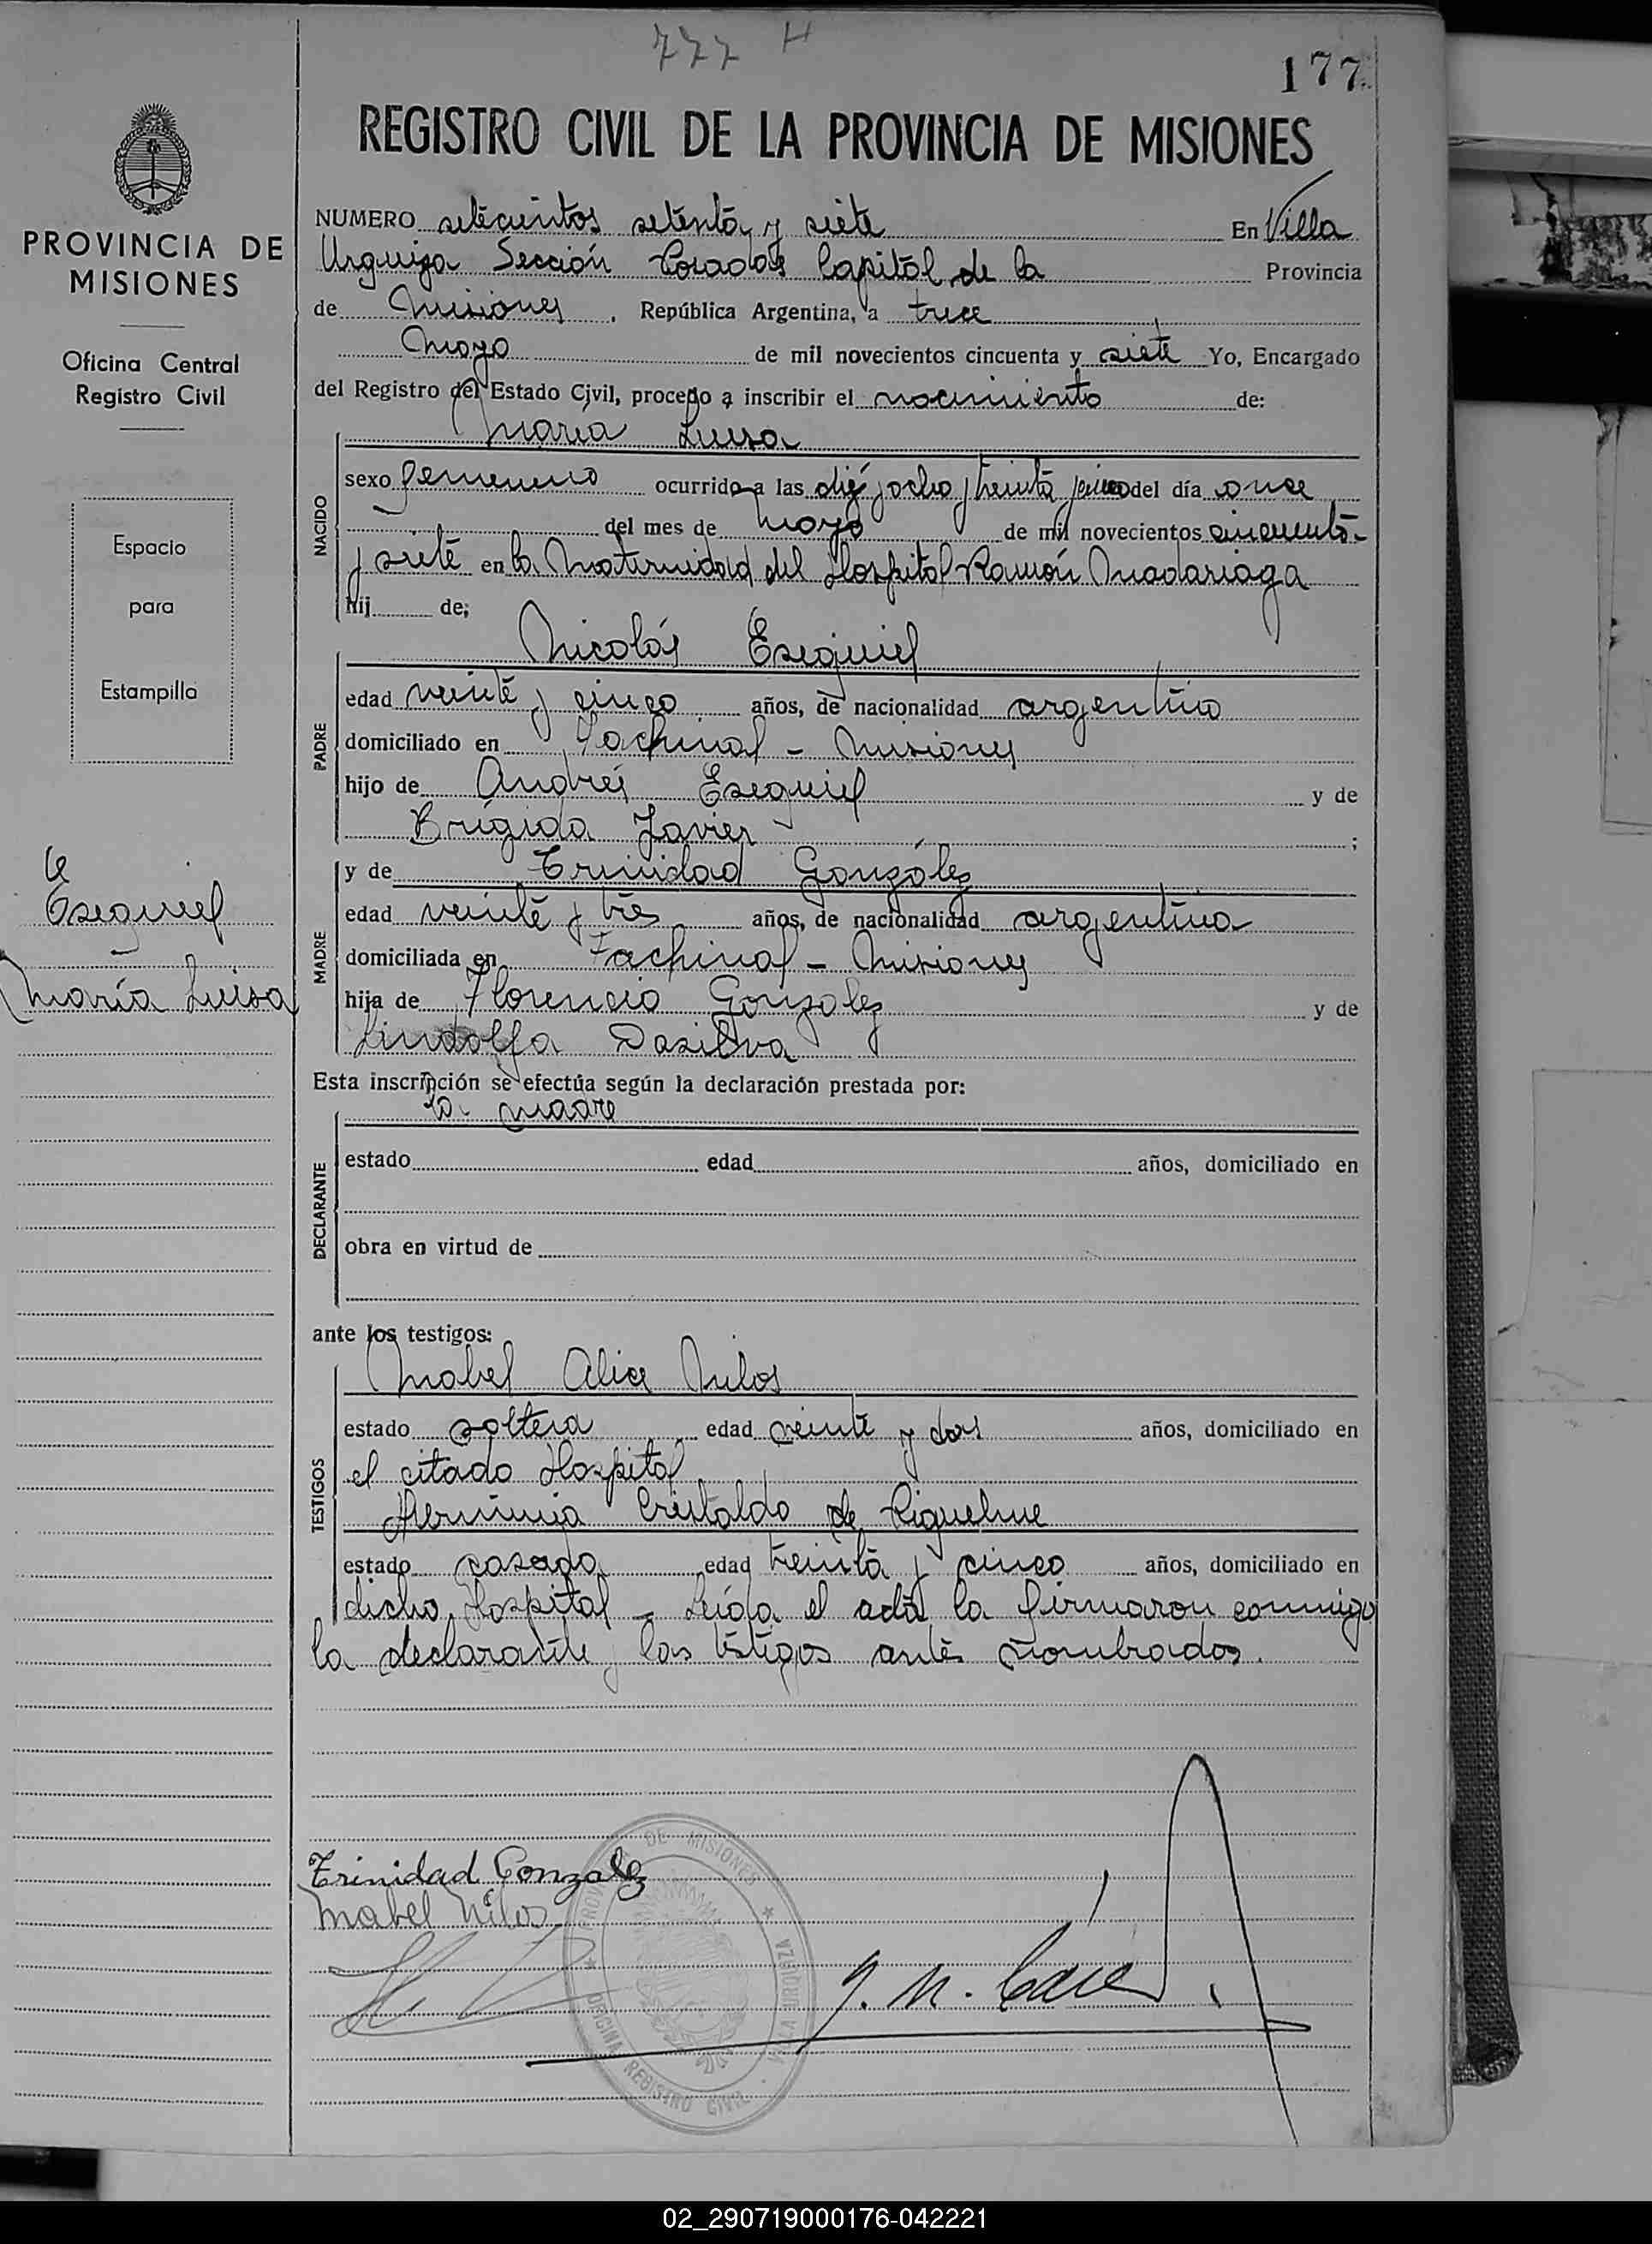 777 H
177
REGISTRO CIVIL DE LA PROVINCIA DE MISIONES
PROVINCIA DE
MISIONES
Oficina Central
Registro Civil
Espacio
para
Estampilla
Esequiel
María Luisa
NUMERO setecientos setenta y siete En Villa
Urquiza Sección Posadas Capital de la Provincia
de Misiones, República Argentina, a trece
Mayo de mil novecientos cincuenta y siete Yo, Encargado
del Registro del Estado Civil, procedo a inscribir el nacimiento de:
NACIDO
María Luisa
sexo femenino ocurrido a las diez y ocho y treinta y cinco del día once
del mes de Mayo de mil novecientos cincuenta
y siete en la Maternidad del Hospital Ramón Madariaga
hij de;
PADRE
Nicolás Esequiel
edad veinte y cinco años, de nacionalidad argentino
domiciliado en Fachinal - Misiones
hijo de Andrés Esequiel y de
Brígida Javier ;
MADRE
y de Trinidad González
edad veinte y tres años, de nacionalidad argentina
domiciliada en Fachinal - Misiones
hija de Florencio Gonzalez y de
Lindolfa Dasilva
Esta inscripción se efectúa según la declaración prestada por:
DECLARANTE
la madre
estado edad años, domiciliado en
obra en virtud de
ante los testigos:
TESTIGOS
Mabel Alice Nilos
estado soltera edad veinte y dos años, domiciliado en
el citado Hospital
Herminia Cristaldo de Riquelme
estado casada edad treinta y cinco años, domiciliado en
dicho Hospital - Leída el acta la firmaron conmigo
la declarante y los testigos antes nombrados.
Trinidad Gonzalez
Mabel Nilos
PROVINCIA DE MISIONES
VILLA URQUIZA
OFICINA REGISTRO CIVIL
02_290719000176-042221